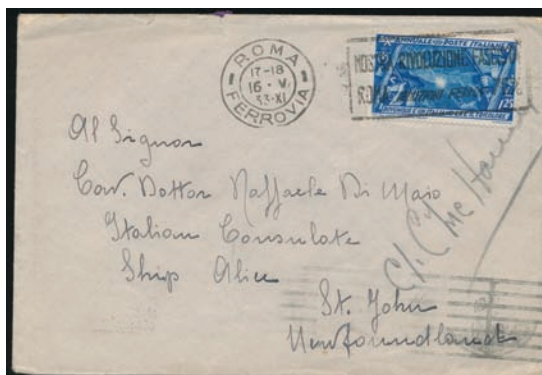 ROMA
17-18
16 · V
33-XI
FERROVIA
POSTE ITALIANE
MOSTRA RIVOLUZIONE FASCISTA
ROMA
1,25
Al Signor
Cav. Dottor Raffaele Di Maio
Italian Consulate
Ship Alice
St. John
Newfoundland